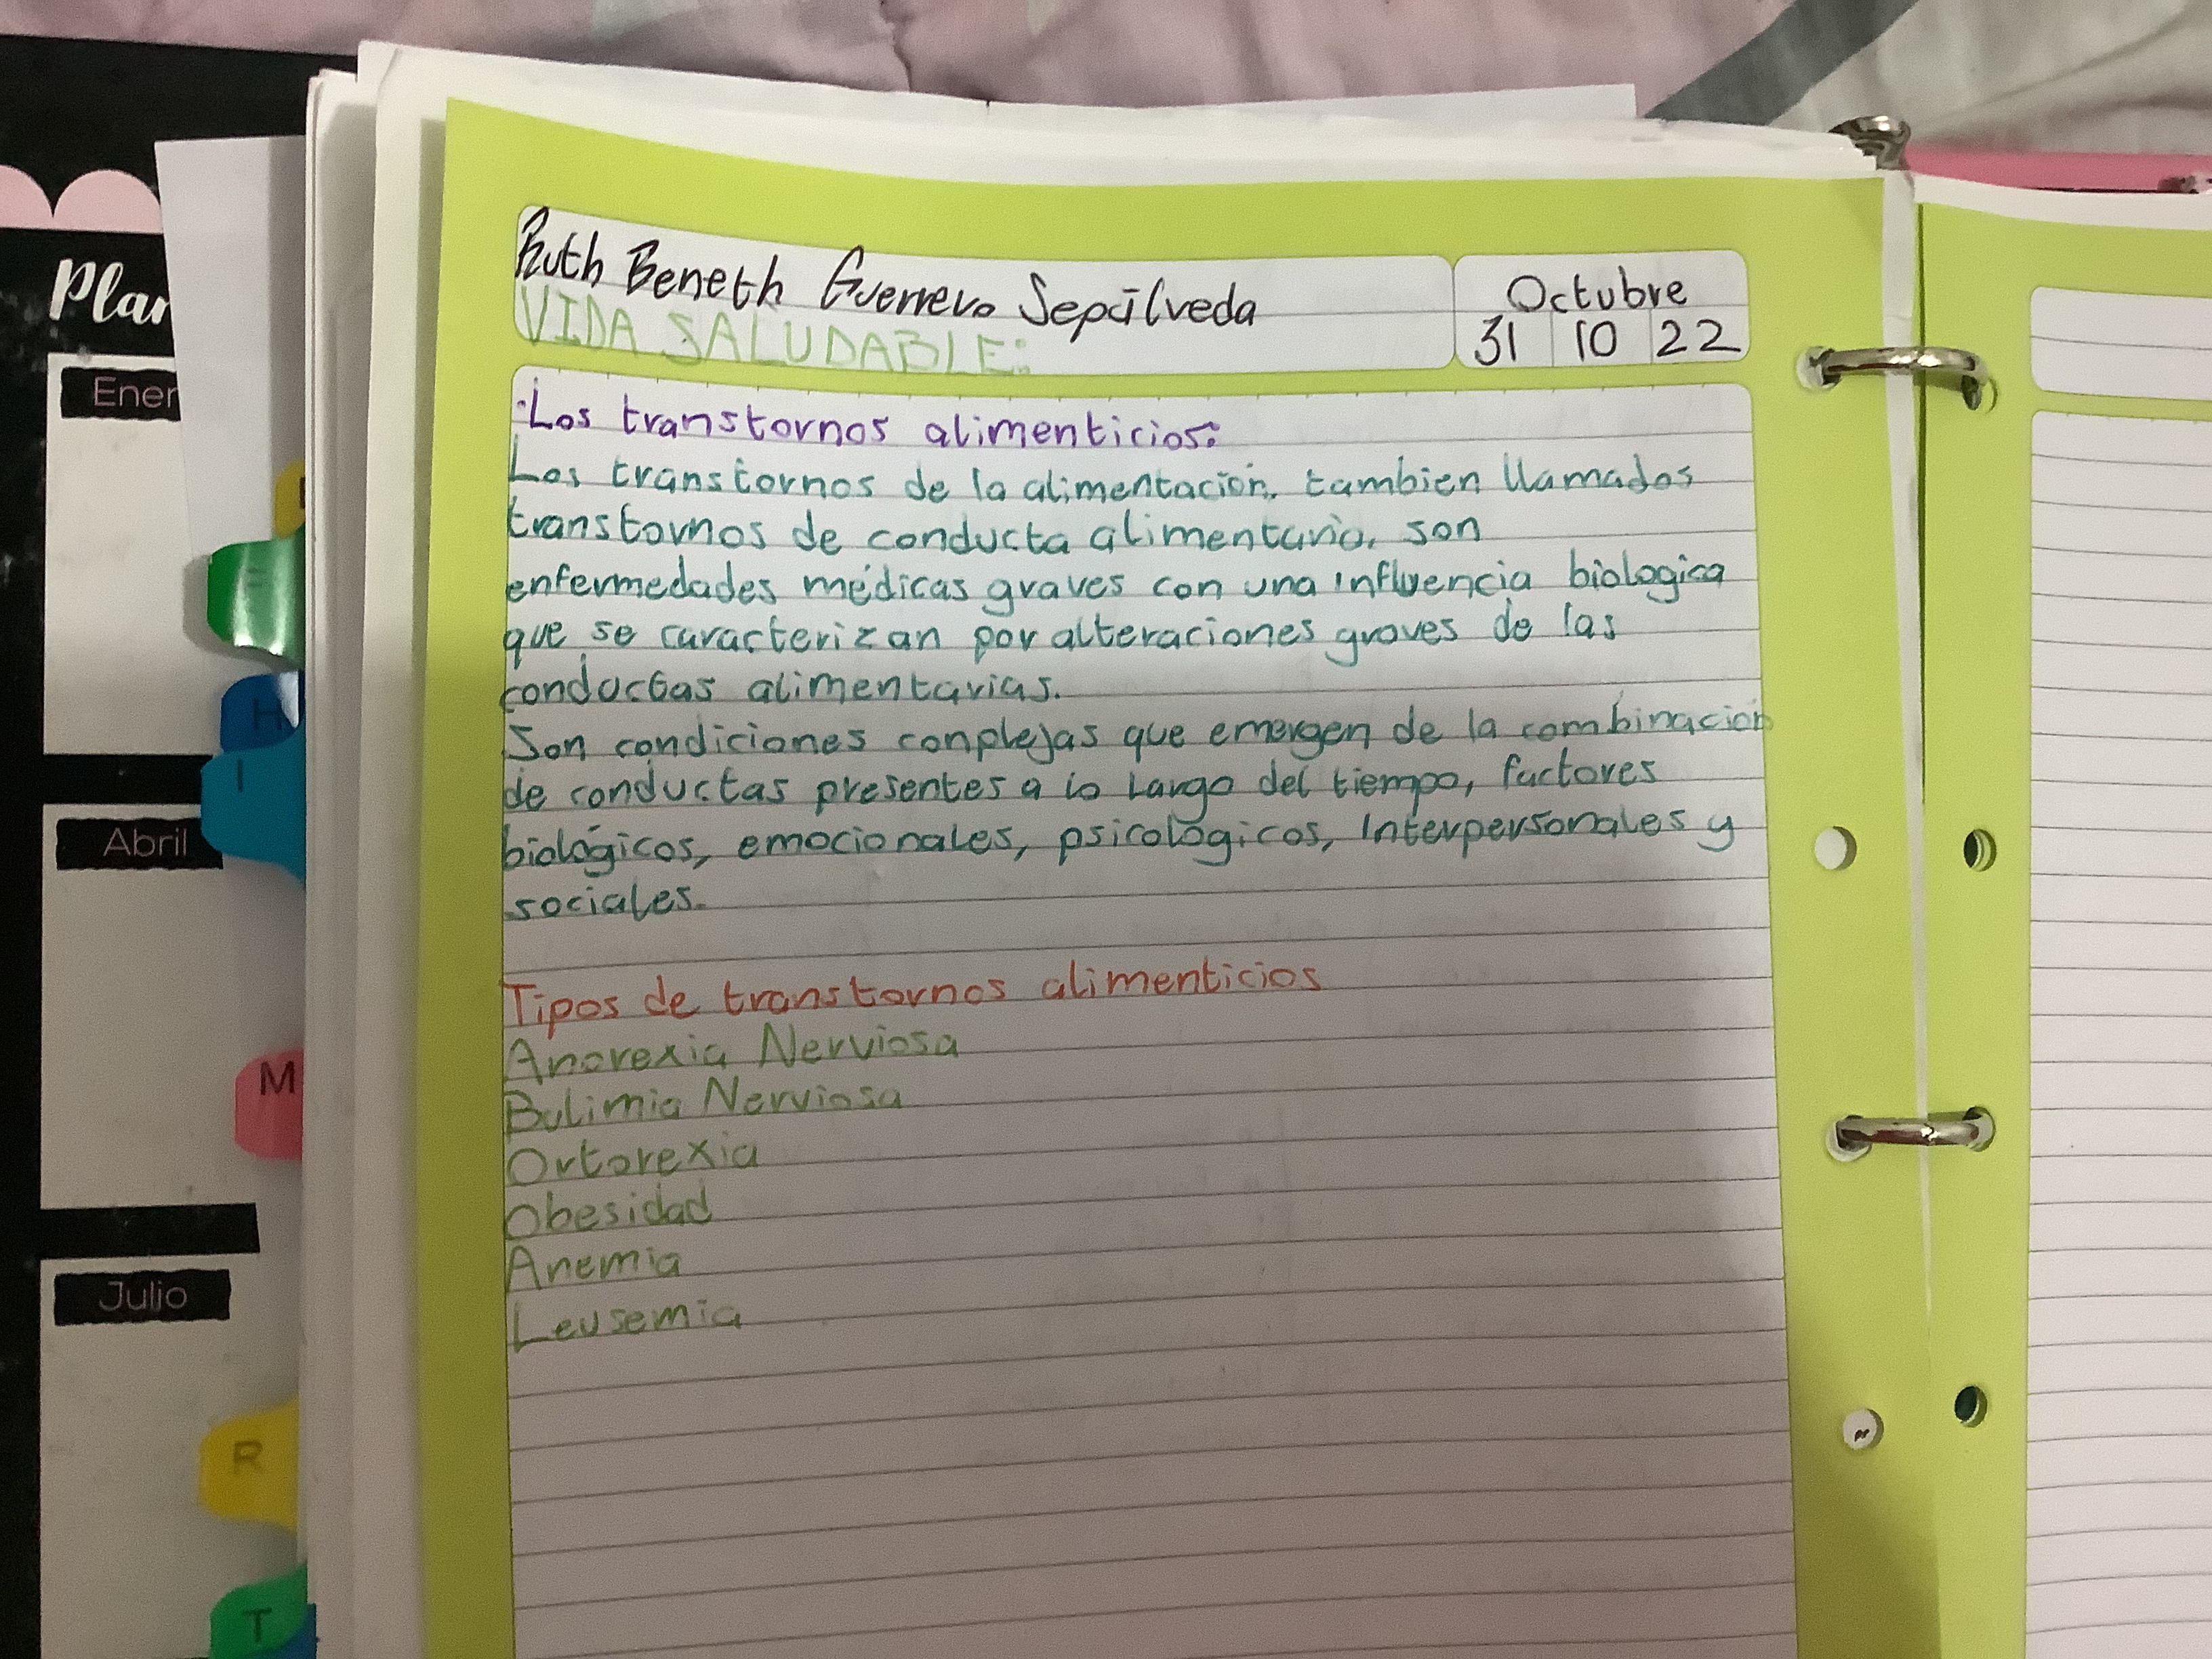 Ruth Beneth Guerrero Sepúlveda
VIDA SALUDABLE:
Octubre
31 10 22
·Los transtornos alimenticios:
Los transtornos de la alimentación, tambien llamados
transtornos de conducta alimentaria, son
enfermedades médicas graves con una influencia biologica
que se caracterizan por alteraciones graves de las
conductas alimentarias.
Son condiciones conplejas que emergen de la combinacion
de conductas presentes a lo largo del tiempo, factores
biológicos, emocionales, psicológicos, Interpersonales y
sociales.
Tipos de transtornos alimenticios
Anorexia Nerviosa
Bulimia Nerviosa
Ortorexia
Obesidad
Anemia
Leusemia
Plan
Ener
Abril
Julio
H
I
M
R
T